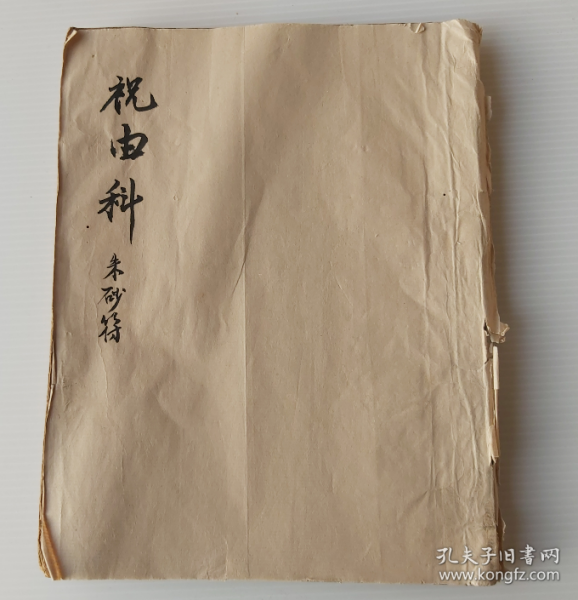 祝由科
朱砂符
孔夫子旧书网
www.kongfz.com